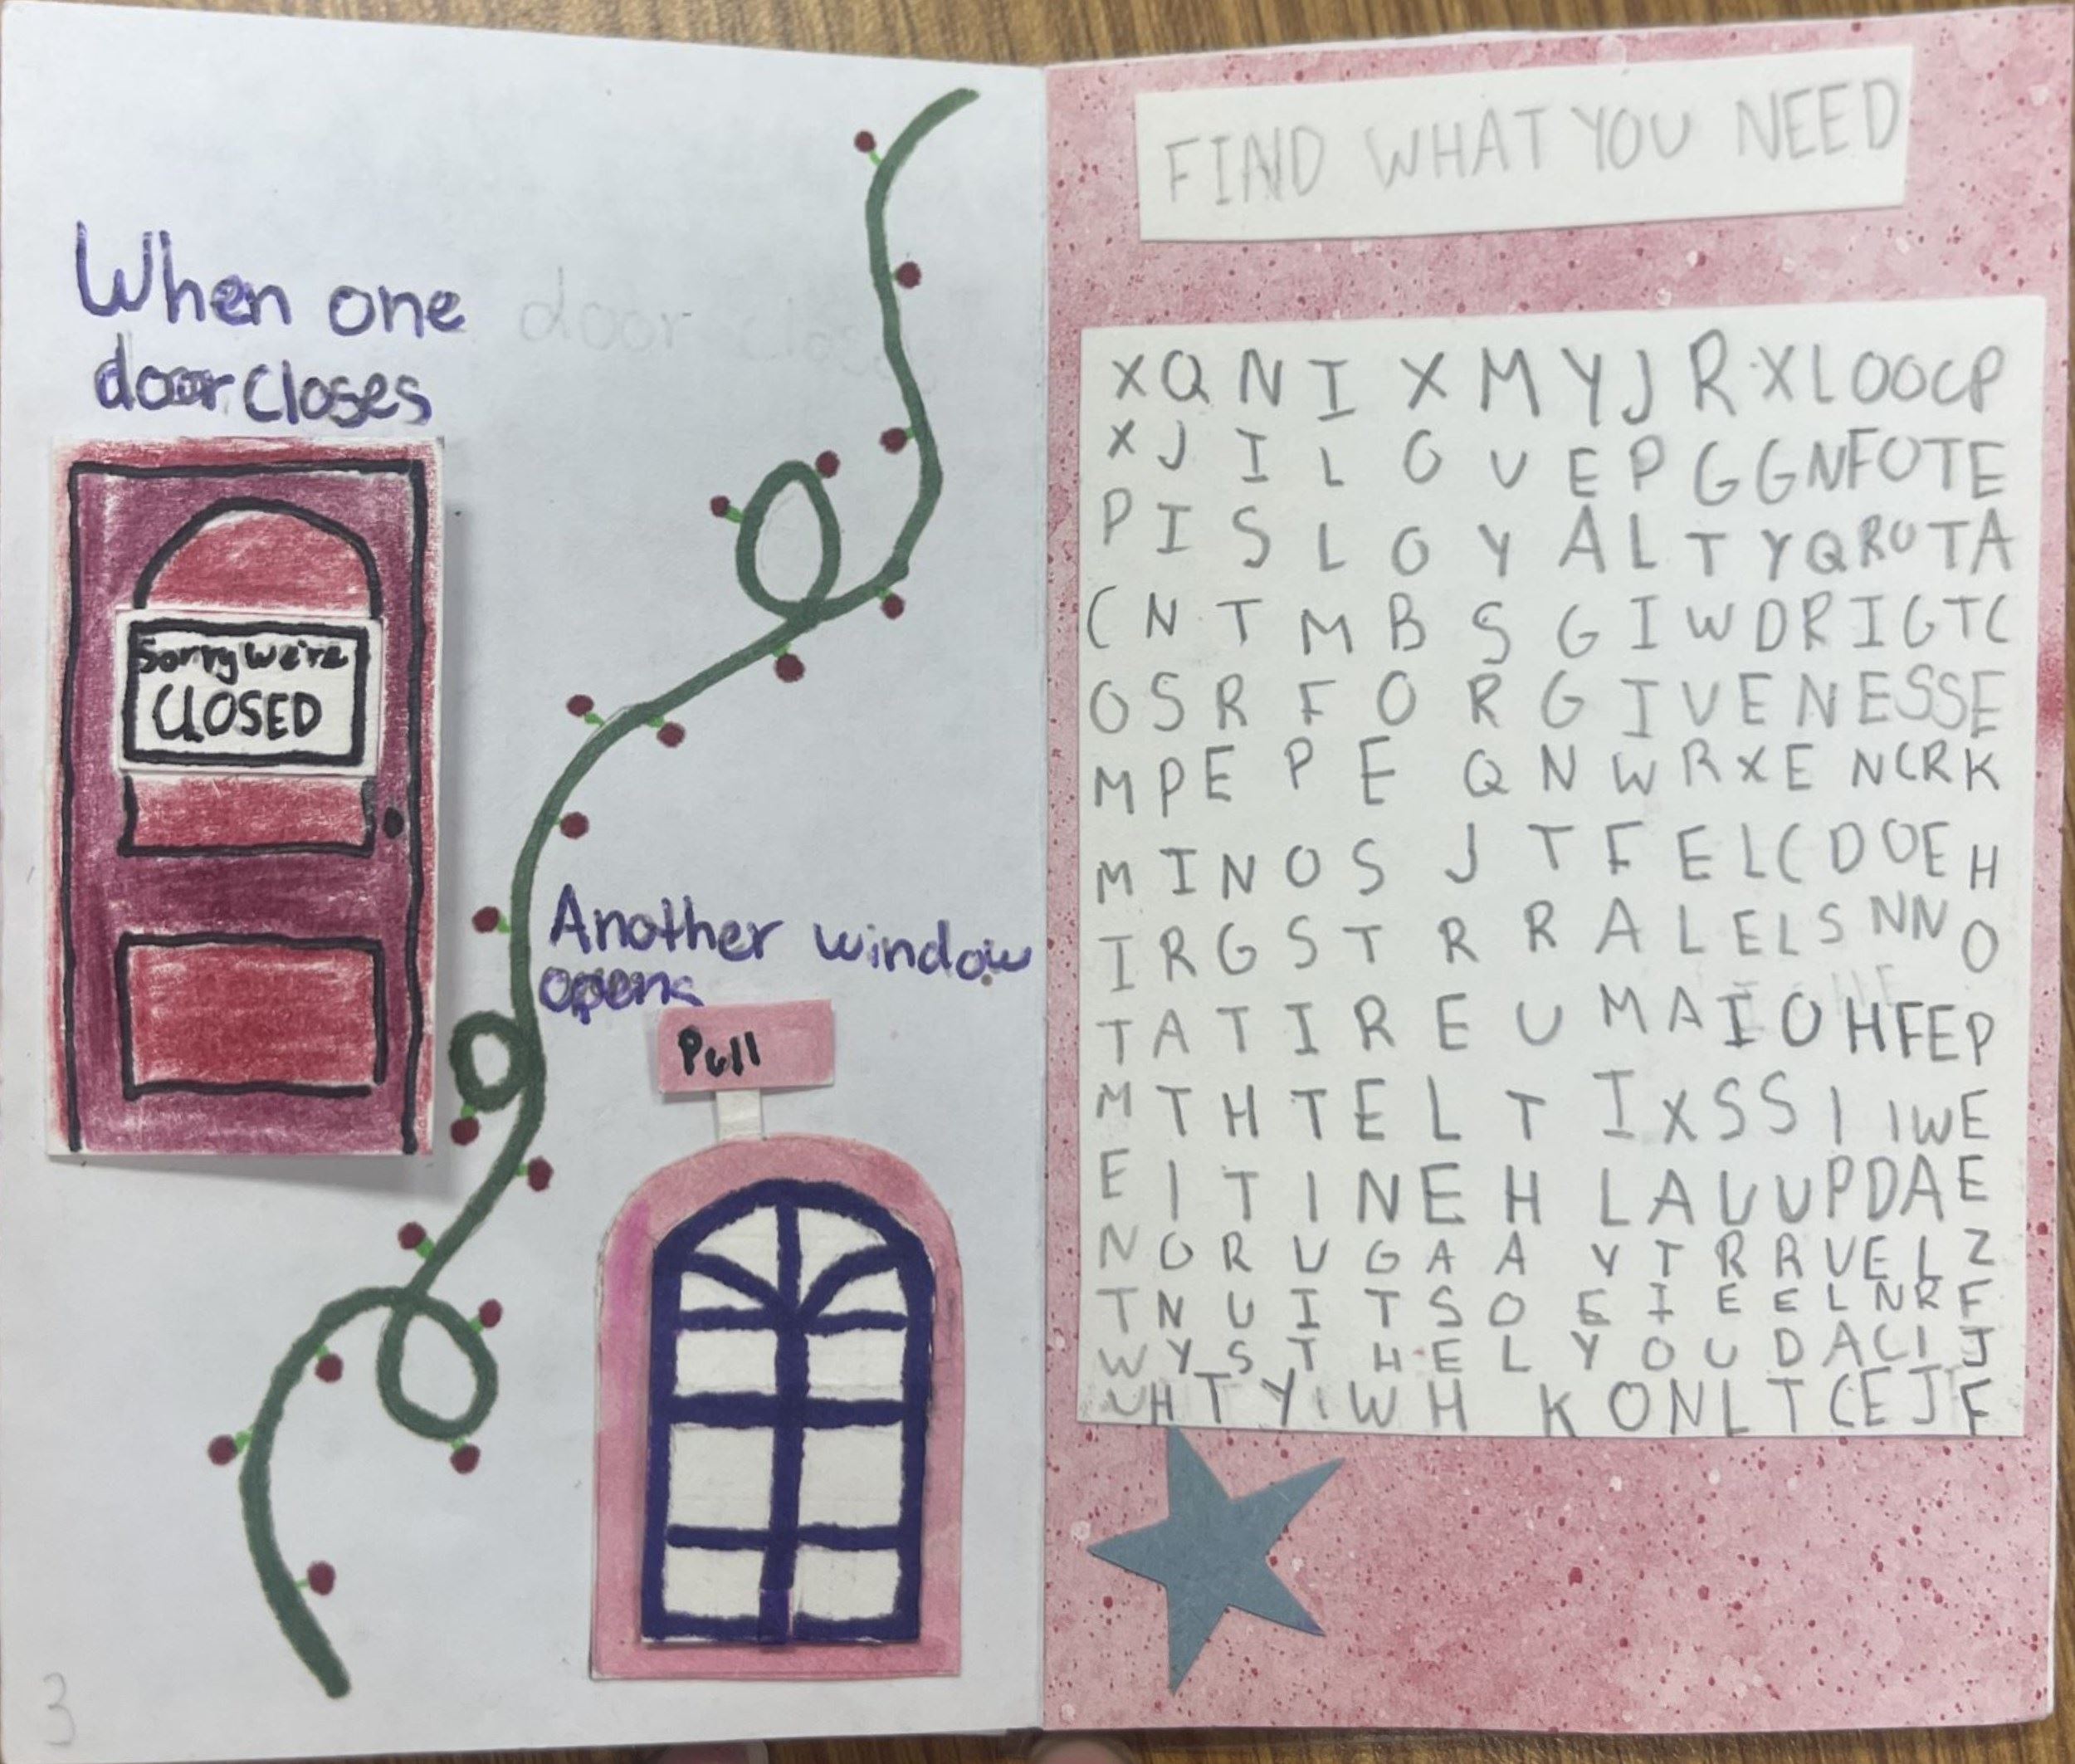 When one door closes
door closes
Sorry we're
CLOSED
Another window
opens
Pull
3
FIND WHAT YOU NEED
X Q N I X M Y J R X L O O C P
X J I L O V E P G G N F O T E
P I S L O Y A L T Y Q R O T A
C N T M B S G I W D R I G T C
O S R F O R G I V E N E S S E
M P E P E Q N W R X E N C R K
M I N O S J T F E L C D O E H
I R G S T R R A L E L S N N O
T A T I R E U M A I O H F E P
M T H T E L T I X S S I I W E
E I T I N E H L A U U P D A E
N O R U G A A V T R R V E L Z
T N U I T S O E I E E L N R F
W Y S T H E L Y O U D A C I J
U H T Y I W H K O N L T C E J F